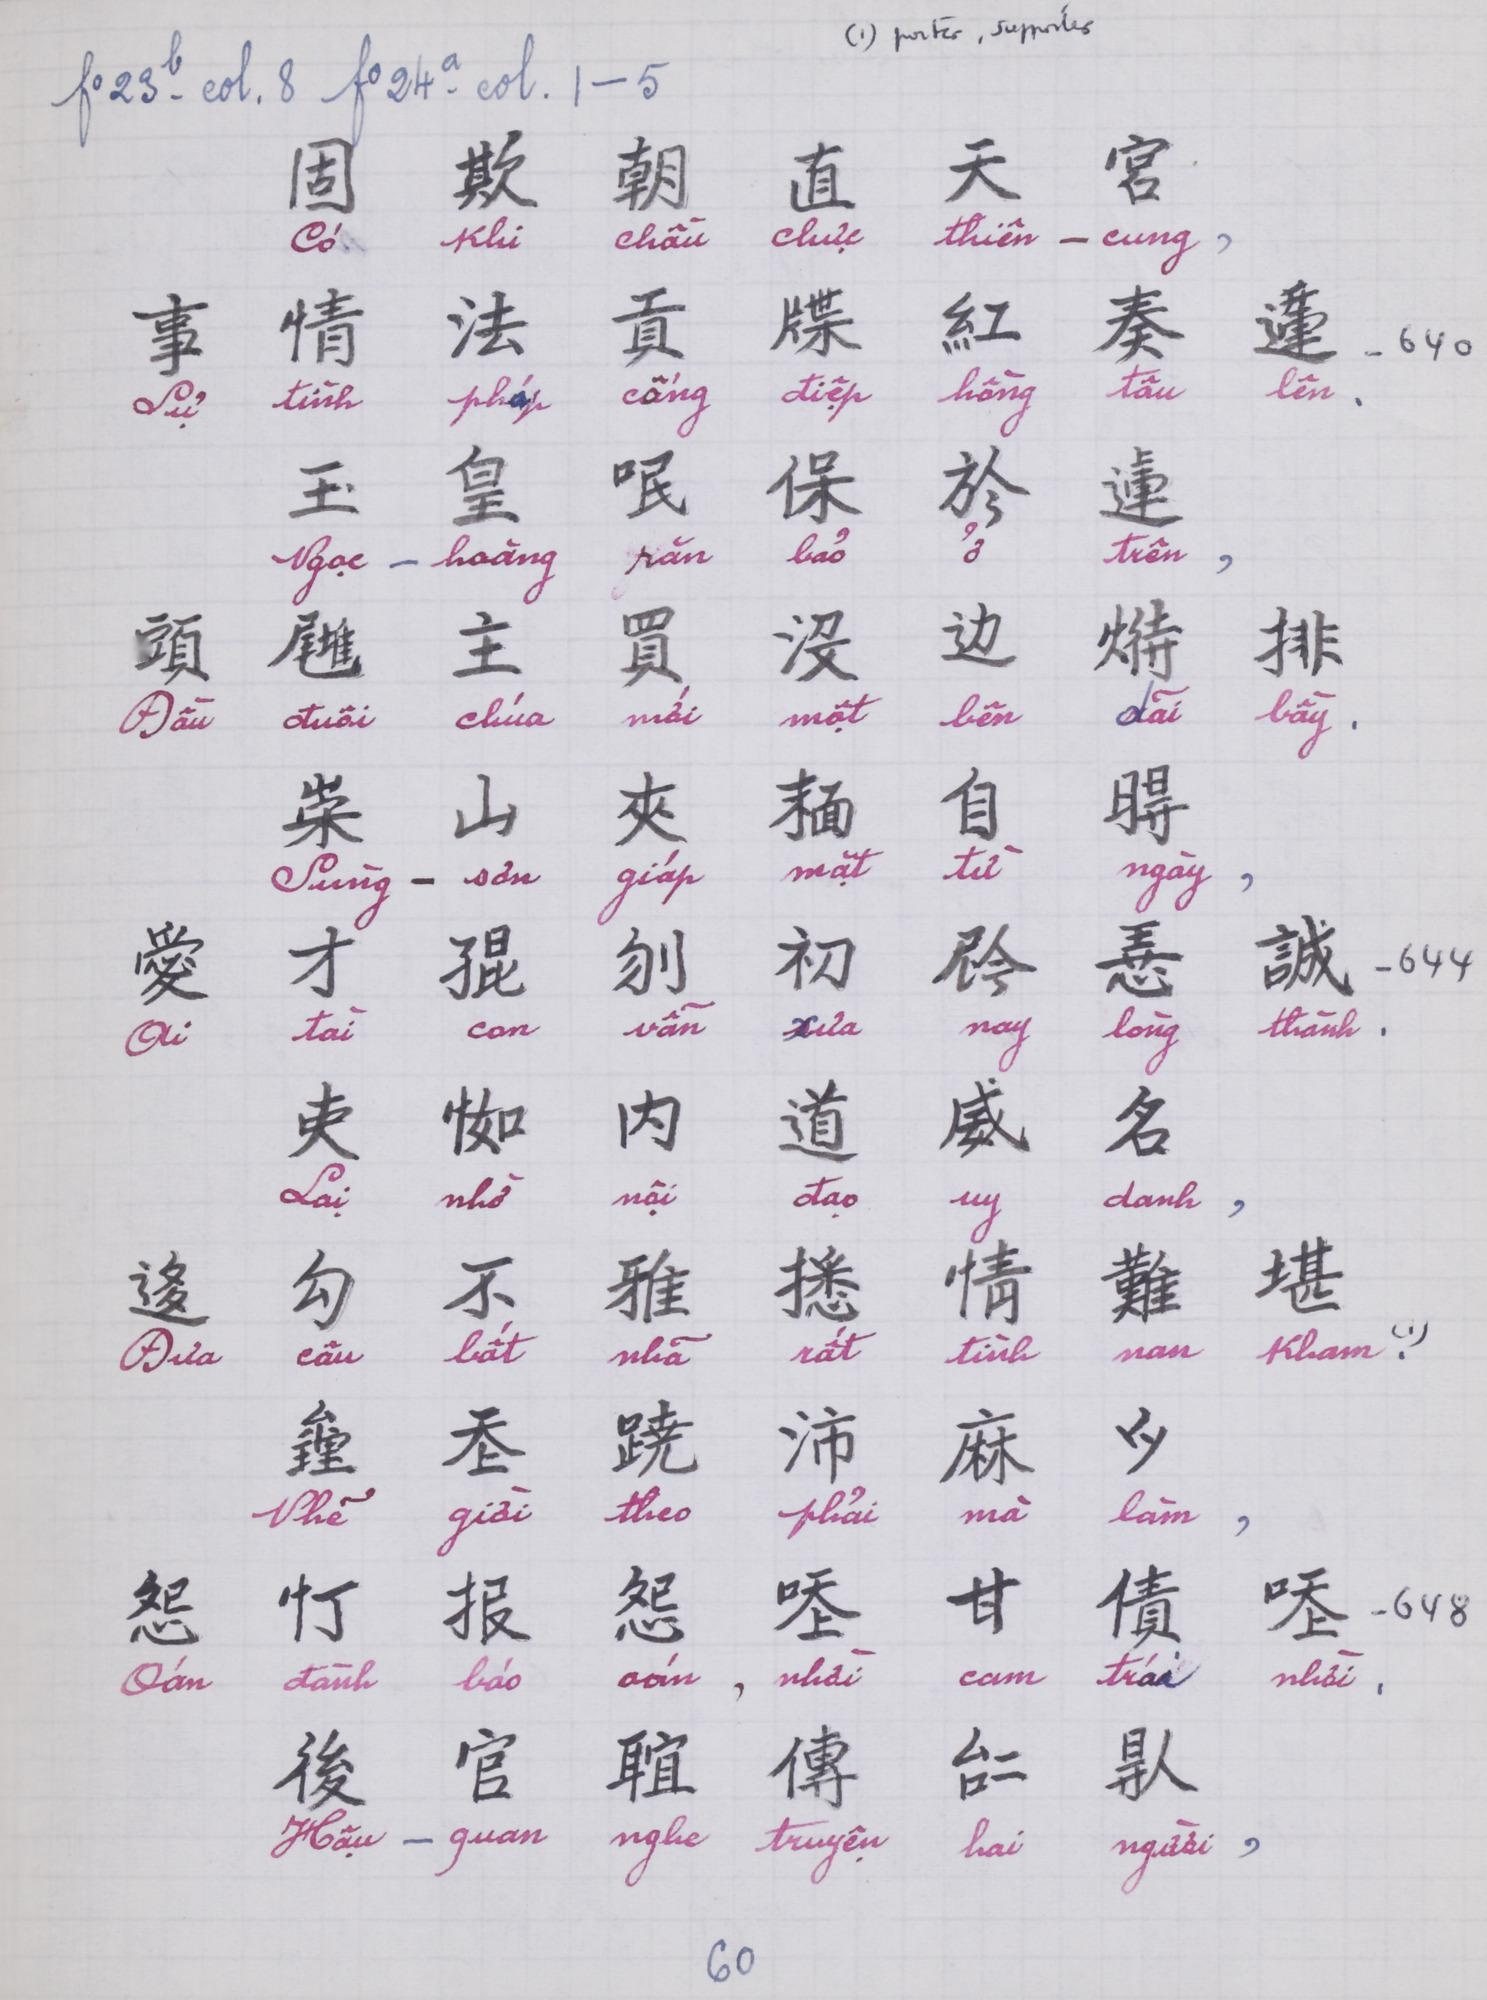 (1) porter, supporter
fo 23b - col. 8 fo 24a - col. 1-5
固 欺 朝 直 天 宮
Có khi chầu chực thiên - cung,
事 情 法 貢 牒 紅 奏 𨖲 - 640
Sự tình pháp cống điệp hồng tấu lên.
玉 皇 呡 保 於 𨕭
Ngọc - hoàng răn bảo ở trên,
頭 主 買 沒 边 排
Đầu đuôi chúa mới một bên dãi bầy.
崇 山 夾 𩈘 自 𣈜
Sùng - sơn giáp mặt từ ngày,
愛 才 混 刎 初 誠 - 644
Ai tài con vẫn xưa nay lòng thành.
吏 𢘾 内 道 威 名
Lại nhờ nội đạo uy danh,
迻 勾 不 雅 情 難 堪
Đưa câu bất nhã rất tình nan kham (1).
𡗶 蹺 沛 麻 𫜵
Nhẽ giời theo phải mà làm,
怨 忊 报 怨 甘 債 - 648
Oán đành báo oán, nhời cam trái nhời.
後 官 𦖑 傳 𠄩 𠊛
Hậu - quan nghe truyện hai người,
60